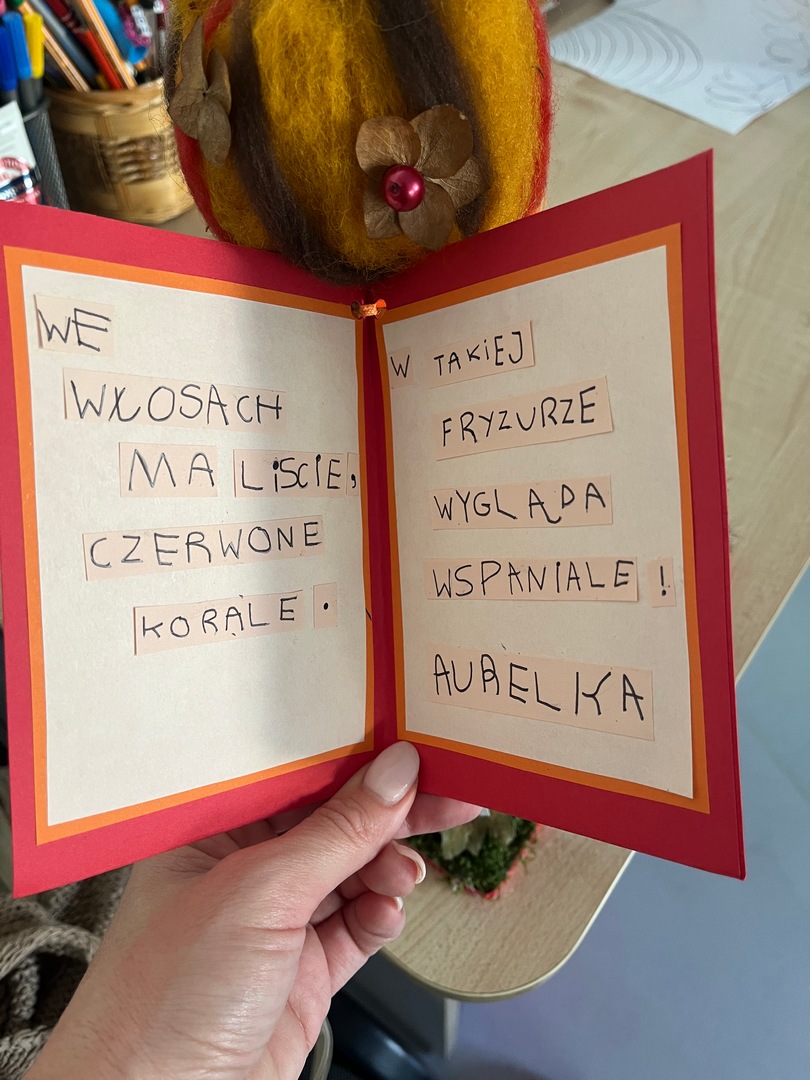 WE
WŁOSACH
MA LiŚCIE,
CZERWONE
KORALE.
W TAKiEJ
FRYZURZE
WYGLĄDA
WSPANIALE!
AURELKA